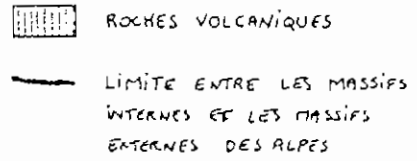 ROCHES VOLCANIQUES
LIMITE ENTRE LES MASSIFS
INTERNES ET LES MASSIFS
EXTERNES DES ALPES